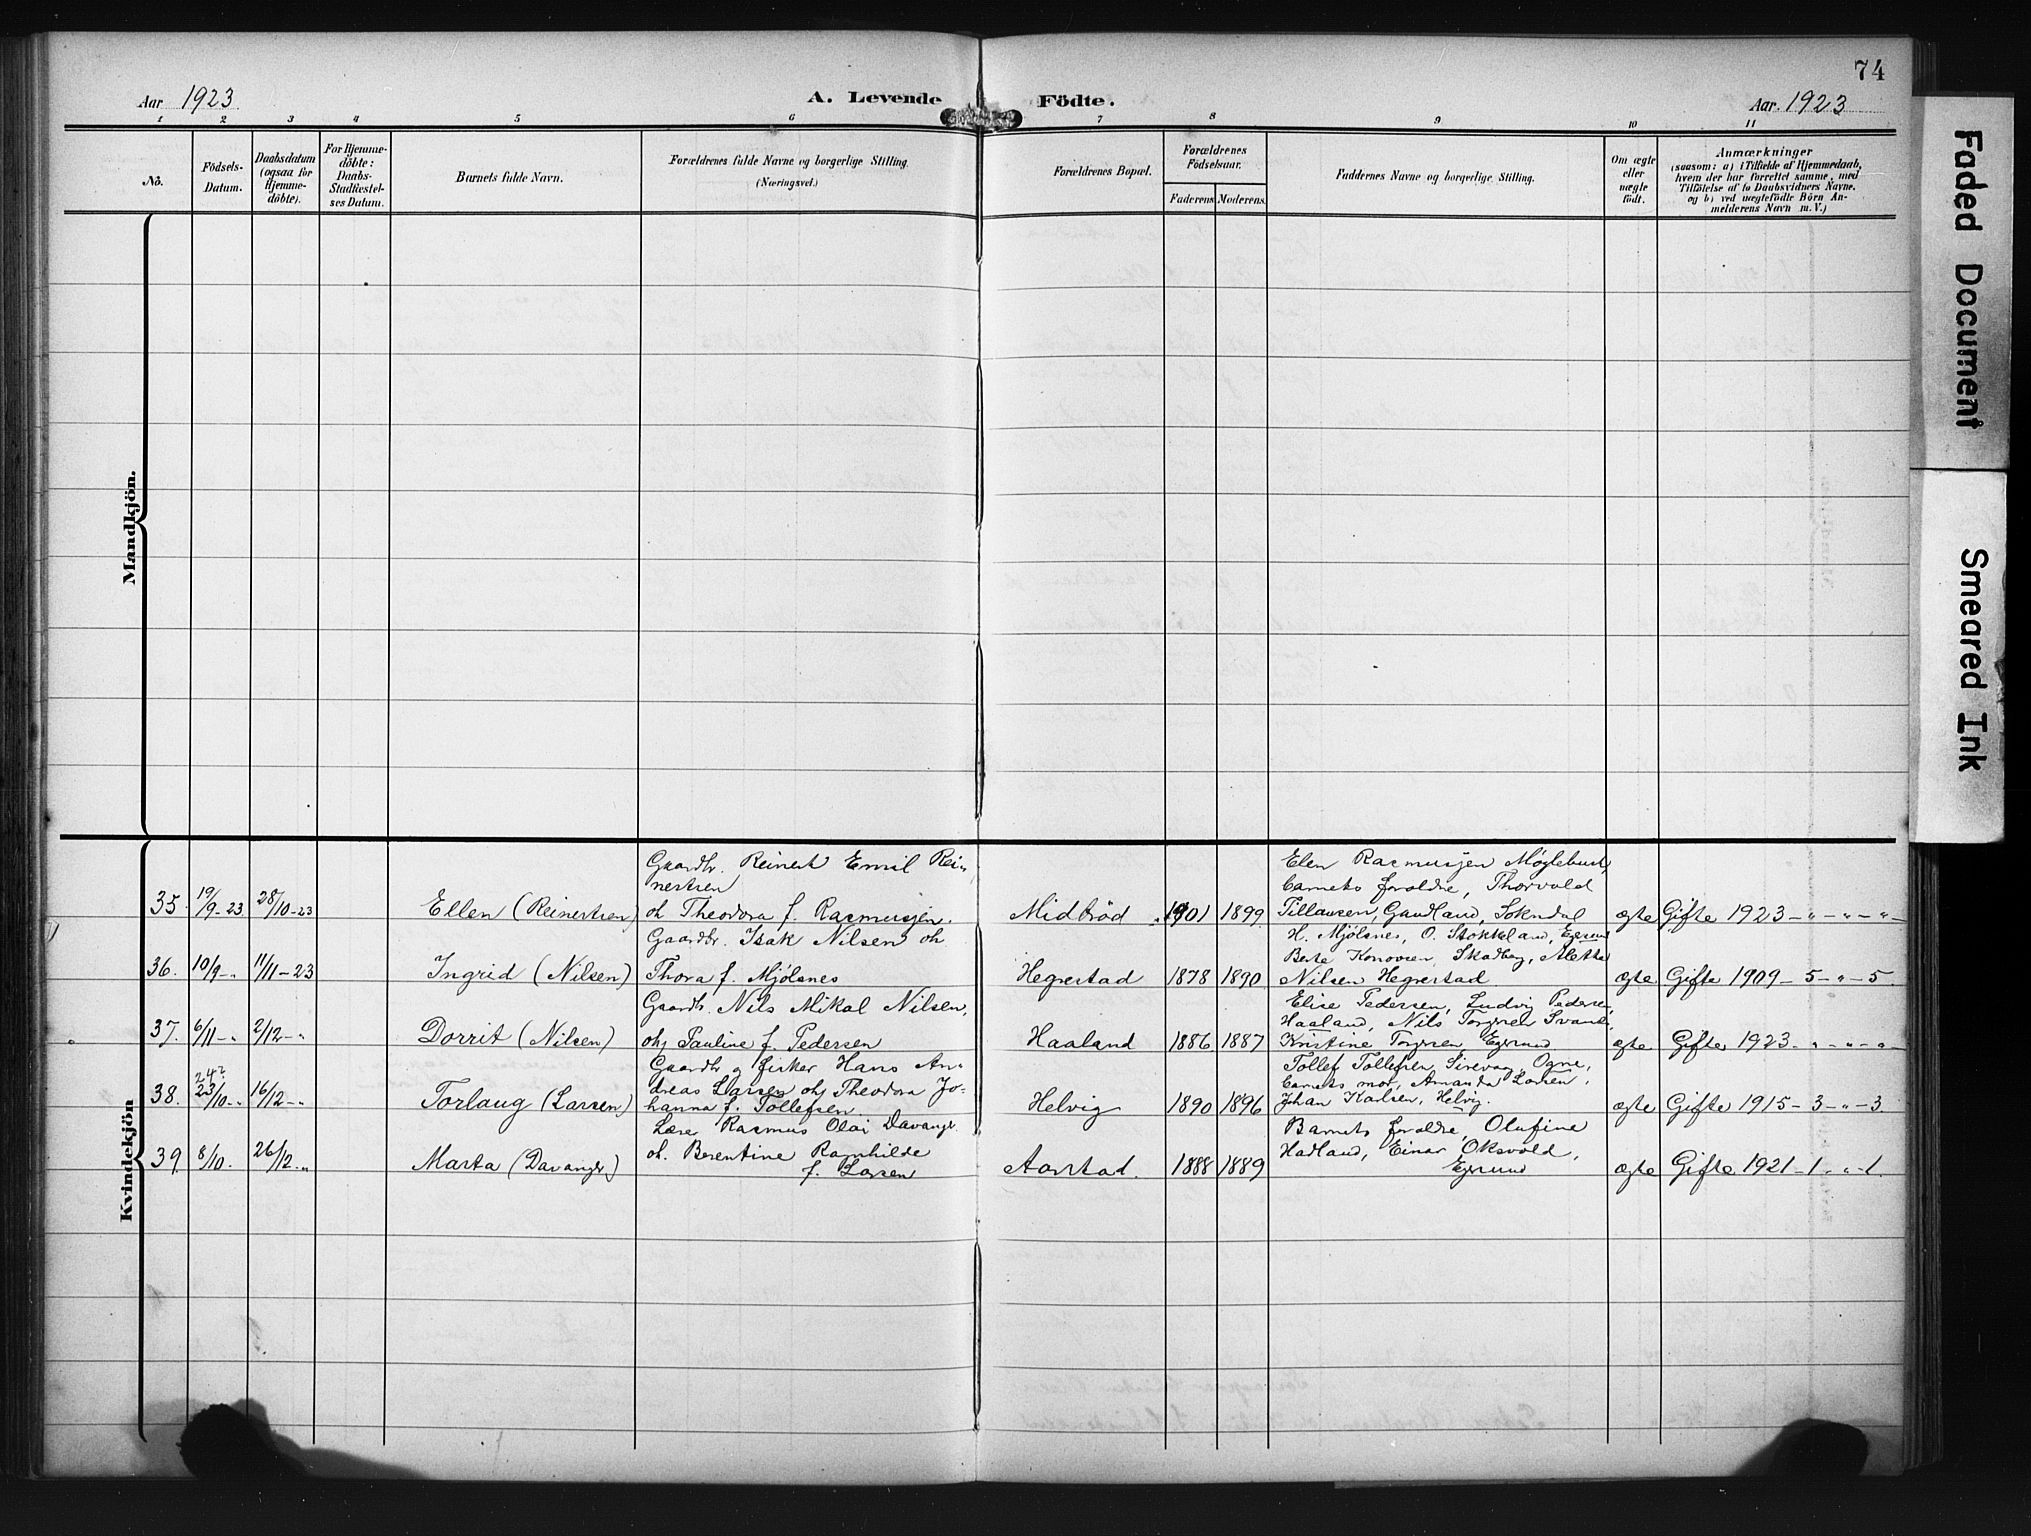 74
Aar 1923
A. Levende Födte.
Aar. 1923
1 2 3 4 5 6 7 8 9 10 11
No.
Födsels-
Datum.
Daabsdatum
(ogsaa for
Hjemme-
döbte).
For Hjemme-
döbte:
Daabs-
Stadfæstel-
ses Datum.
Barnets fulde Navn.
Forældrenes fulde Navne og borgerlige Stilling.
(Næringsvei.)
Forældrenes Bopæl.
Forældrenes
Födselsaar.
Faderens Moderens.
Faddernes Navne og borgerlige Stilling.
Om ægte
eller
uægte
födt.
Anmærkninger
(saasom: a) i Tilfælde af Hjemmedaab,
hvem der har forrettet samme, med
Tilföielse af to Daabsvidners Navne.
og b) ved uægtefödte Börn An-
melderens Navn m. V.)
Mandkjön.
Kvindekjön
Gaardbr. Reinert Emil Rei-
nertsen
35. 19/9-23 28/10-23 Ellen (Reinertsen) oh Theodora f. Rasmussen.
Midbröd 1901 1899
Elen Rasmussen Møglebust,
barnets forældre, Thorvald
Tillaugsen, Gaudland, Sokndal
ægte Gifte 1923 - " - " - " -
Gaardbr. Isak Nilsen oh
36. 10/9-" 11/11-23 Ingrid (Nilsen) Thora f. Mjølsnes
Hegrestad 1878 1890
H. Mjølsnes, O. Stokkeland, Egersund
Berte Konovsen, Skadberg, Aletta
Nilsen Hegrestad
ægte Gifte 1909 - 5 - " - 5.
Gaardbr. Nils Mikal Nilsen,
37. 6/11-" 2/12-" Dorrit (Nilsen) oh Pauline f. Pedersen
Haaland 1886 1887
Elise Pedersen, Ludvig Pedersen,
Haaland, Nils Torgersen Svanes,
Kristine Torgersen Egersund
ægte Gifte 1923 - " - " - " -
Gaardbr og fisker Hans An-
dreas Larsen oh Theodora Jo-
24?
38. 23/10-" 16/12-" Torlaug (Larsen) hanna f. Tollefsen.
Helvig 1890 1896
Tollef Tollefsen, Sirevaag, Ogne,
Barnets mor, Amanda Larsen,
Johan Karlsen, Helvig.
ægte Gifte 1915 - 3 - " - 3
Lærer Rasmus Olai Davanger
oh. Berentine Ragnhilde
39. 8/10. 26/12-" Marta (Davanger) f. Larsen
Aarstad. 1888 1889
Barnets forældre, Olufine
Hadland, Einar Oksvold,
Egersund
ægte Gifte 1921 - 1 - " - 1.
Faded Document
Smeared Ink